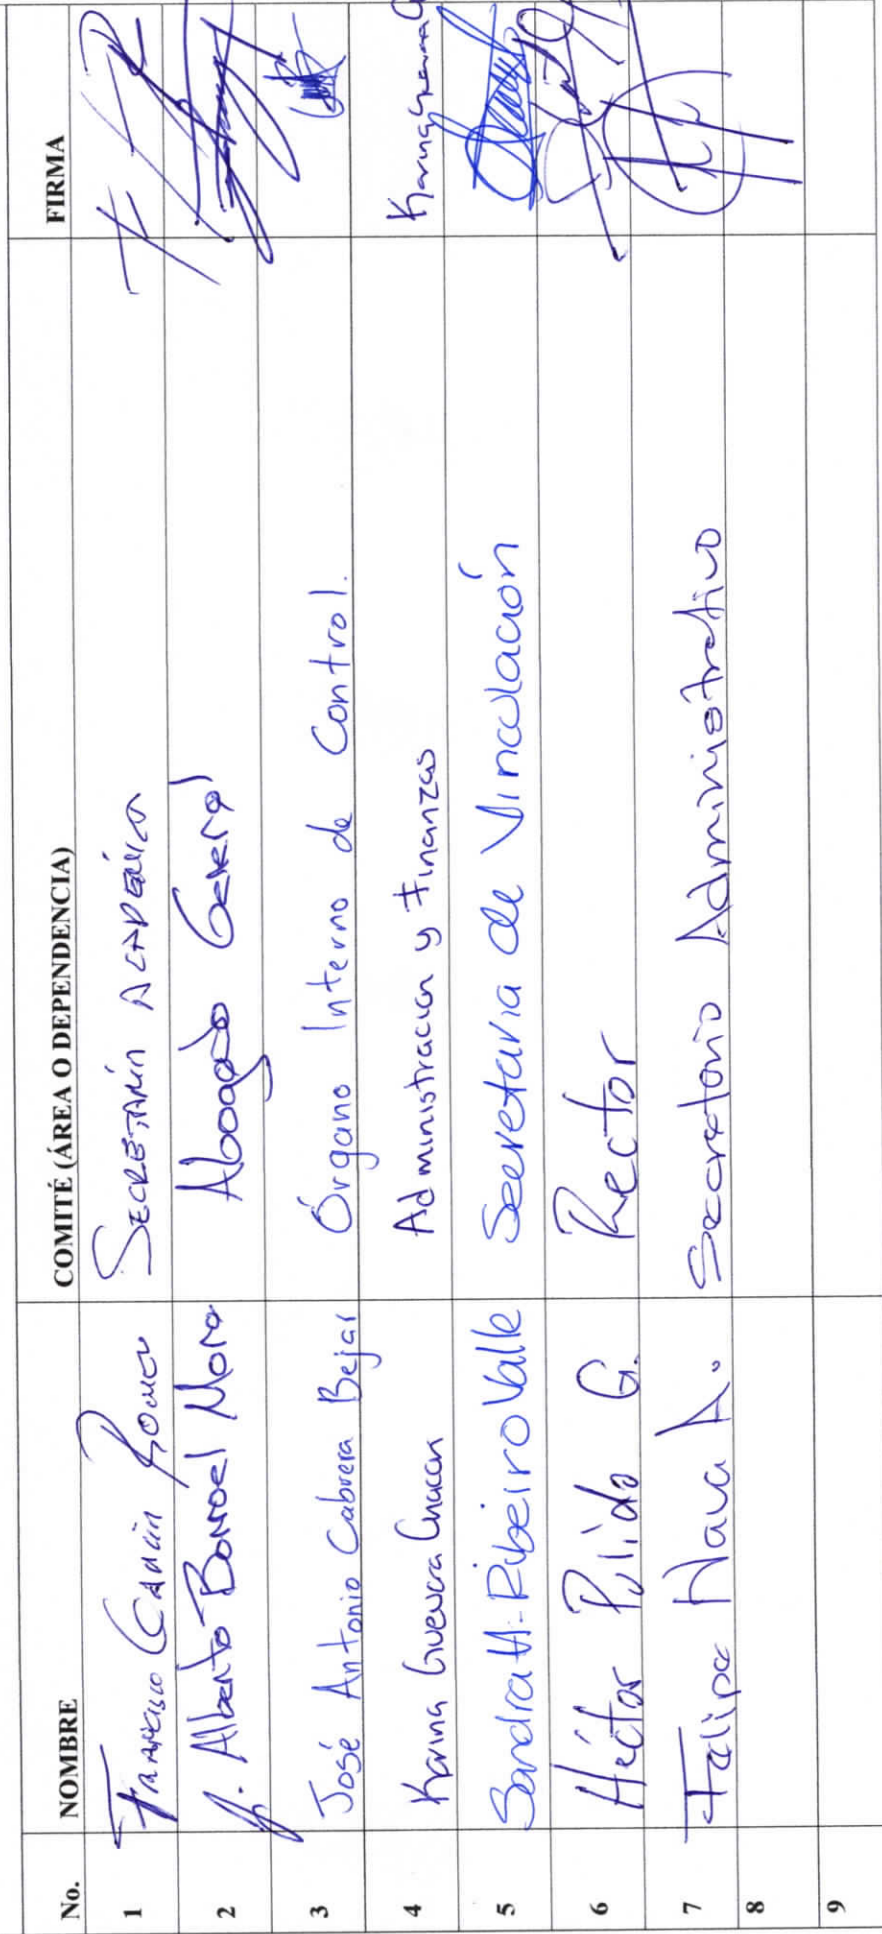 No. NOMBRE COMITÉ (ÁREA O DEPENDENCIA) FIRMA
1 Francisco García Romer SECRETARÍA ACADÉMICA
2 J. Alberto Borroel Mora Abogado General
3 José Antonio Cabrera Bejar Órgano Interno de Control.
4 Karina Guevara Chacon Administracion y Finanzas Karina Guevara
5 Sandra H. Ribeiro Valle Secretaria de Vinculación
6 Héctor Pulido G. Rector
7 Felipe Nava A. Secretario Administrativo
8
9